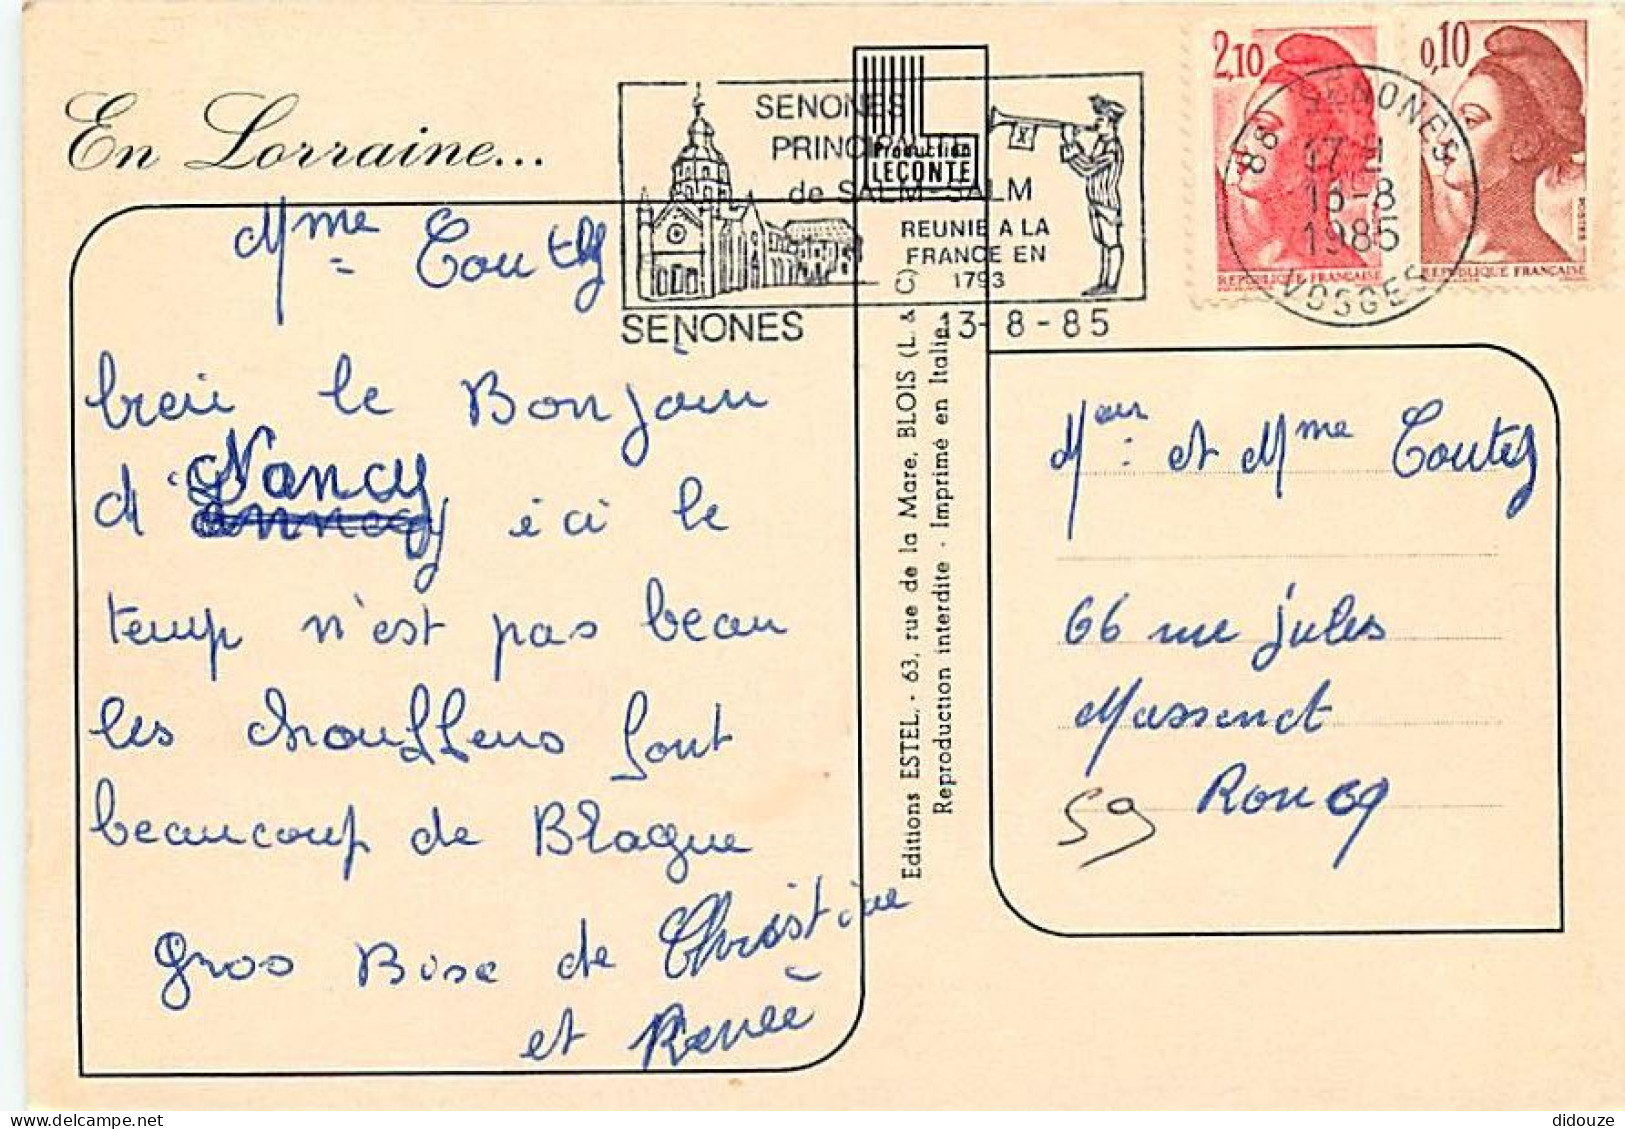 En Lorraine...
SENONES
PRINCIPAUTE
de SALM-SALM
REUNIE A LA
FRANCE EN
1793
SENONES
13-8-85
Production
LECONTE
2,10
REPUBLIQUE FRANÇAISE
0,10
POSTES
REPUBLIQUE FRANÇAISE
88 SENONES
17 H
13-8
1985
VOSGES
Mme
le Bonjour
d' Nancy ici le
temp n'est pas beau
les chauffeurs font
beaucoup de Blague
Gros Bise de Christine
et Renée
Editions ESTEL, - 63, rue de la Mare, BLOIS (L. & C)
Reproduction interdite - Imprimé en Italie
et Mme
66 rue jules
Massenet
59 Roncq
didouze